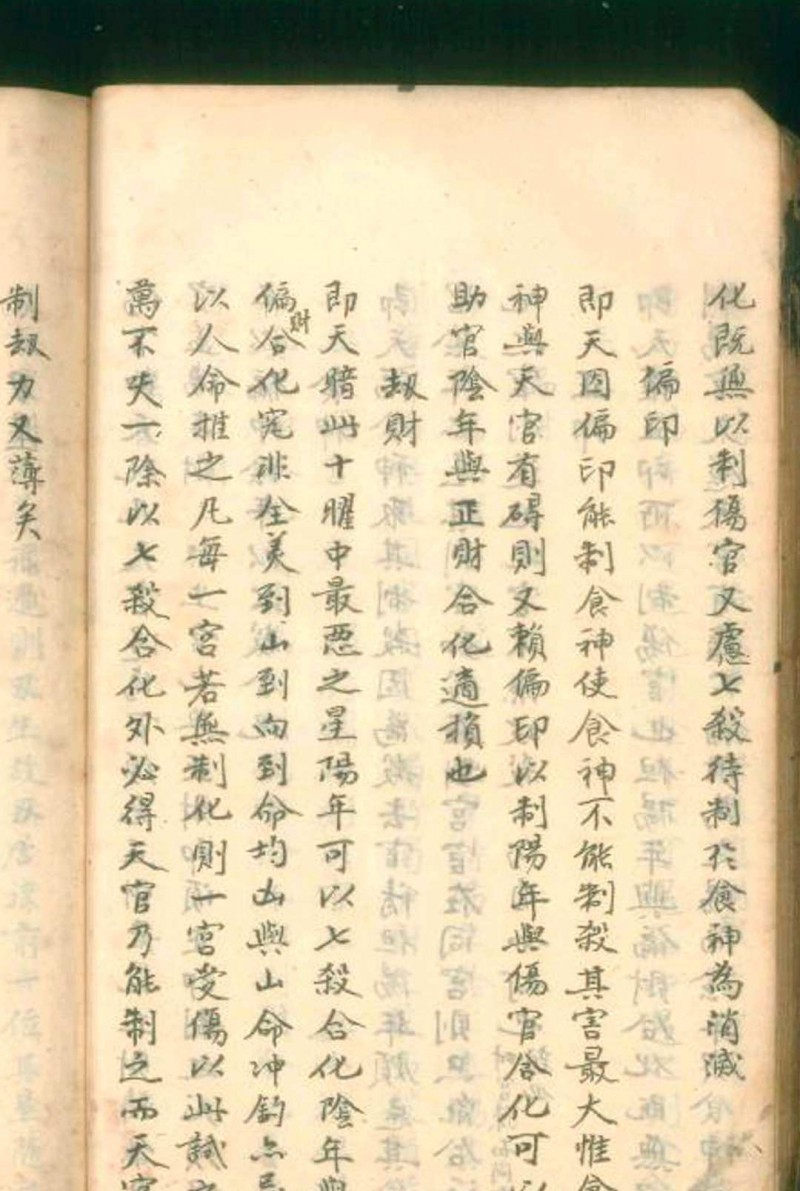 化既無以制傷官又慮七殺待制於食神為消滅
偏印
即天因偏印能制食神使食神不能制殺其害最大惟食
神與天官有碍則又賴偏印以制陽年與傷官合化可以
助官陰年與正財合化適損也
劫財
即天暗此十曜中最惡之星陽年可以七殺合化陰年與
偏財合化究非全美到山到向到命均凶與山命冲鈞亦忌
以人命推之凡每一宮若無制化則一宮受傷以此試之
萬不失一除以七殺合化外必得天官乃能制之而天官
制劫力又薄矣